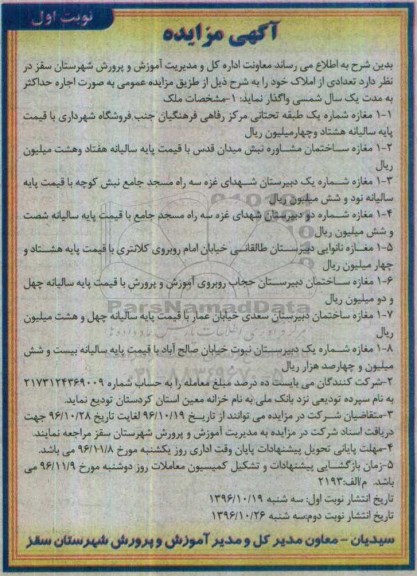 نوبت اول
آگهی مزایده
بدین شرح به اطلاع می رساند معاونت اداره کل و مدیریت آموزش و پرورش شهرستان سقز در
نظر دارد تعدادی از املاک خود را به شرح ذیل از طریق مزایده عمومی به صورت اجاره حداکثر
به مدت یک سال شمسی واگذار نماید: ۱-مشخصات ملک
۱-۱ مغازه شماره یک طبقه تحتانی مرکز رفاهی فرهنگیان جنب فروشگاه شهرداری با قیمت
پایه سالیانه هشتاد وچهارمیلیون ریال
۱-۲ مغازه ساختمان مشاوره نبش میدان قدس با قیمت پایه سالیانه هفتاد وهشت میلیون
ریال
۱-۳ مغازه شماره یک دبیرستان شهدای غزه سه راه مسجد جامع نبش کوچه با قیمت پایه
سالیانه نود و شش میلیون ریال
۱-۴ مغازه شماره دو دبیرستان شهدای غزه سه راه مسجد جامع با قیمت پایه سالیانه شصت
و شش میلیون ریال
۱-۵ مغازه نانوایی دبیرستان طالقانی خیابان امام روبروی کلانتری با قیمت پایه هشتاد و
چهار میلیون ریال
۱-۶ مغازه ساختمان دبیرستان حجاب روبروی آموزش و پرورش با قیمت پایه سالیانه چهل
و دو میلیون ریال
ParsNamadData
۱-۷ مغازه ساختمان دبیرستان سعدی خیابان عمار با قیمت پایه سالیانه چهل و هشت میلیون
ریال
۱-۸ مغازه شماره یک دبیرستان نبوت خیابان صالح آباد با قیمت پایه سالیانه بیست و شش
میلیون و چهارصد هزار ریال
۲-شرکت کنندگان می بایست ده درصد مبلغ معامله را به حساب شماره ۲۱۷۳۱۲۴۳۶۹۰۰۹
به نام سپرده تودیعی نزد بانک ملی به نام خزانه معین استان کردستان تودیع نماید.
۳-متقاضیان شرکت در مزایده می توانند از تاریخ ۹۶/۱۰/۱۹ لغایت تاریخ ۹۶/۱۰/۲۸ جهت
دریافت اسناد شرکت در مزایده به مدیریت آموزش و پرورش شهرستان سقز مراجعه نمایند.
۴-مهلت پایانی تحویل پیشنهادات پایان وقت اداری روز یکشنبه مورخ ۹۶/۱۱/۸ می باشد.
۵-زمان بازگشایی پیشنهادات و تشکیل کمیسیون معاملات روز دوشنبه مورخ ۹۶/۱۱/۹ می
باشد. م/الف:۲۱۹۳
تاریخ انتشار نوبت اول: سه شنبه ۱۳۹۶/۱۰/۱۹
تاریخ انتشار نوبت دوم:سه شنبه ۱۳۹۶/۱۰/۲۶
سیدیان - معاون مدیر کل و مدیر آموزش و پرورش شهرستان سقز